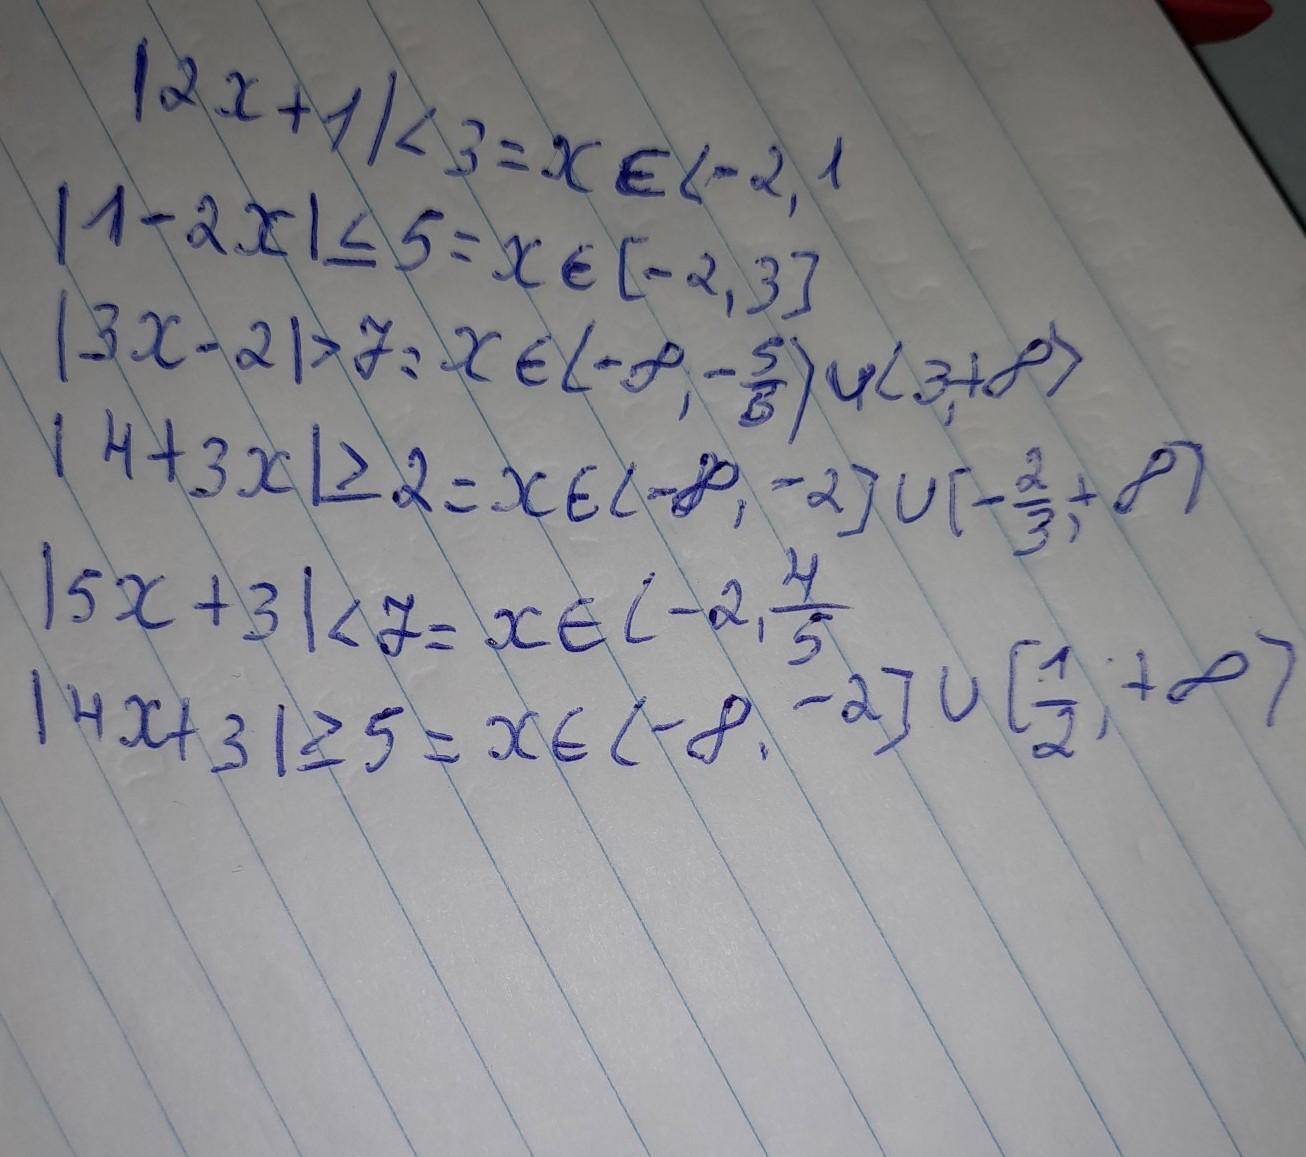 |2x+1|<3=x∈(-2,1
|1-2x|≤5=x∈[-2,3]
|3x-2|>7=x∈(-∞,-5/3)∪(3,+∞)
|4+3x|≥2=x∈(-∞,-2]∪[-2/3,+∞)
|5x+3|<7=x∈(-2,4/5
|4x+3|≥5=x∈(-∞,-2]∪[1/2,+∞)